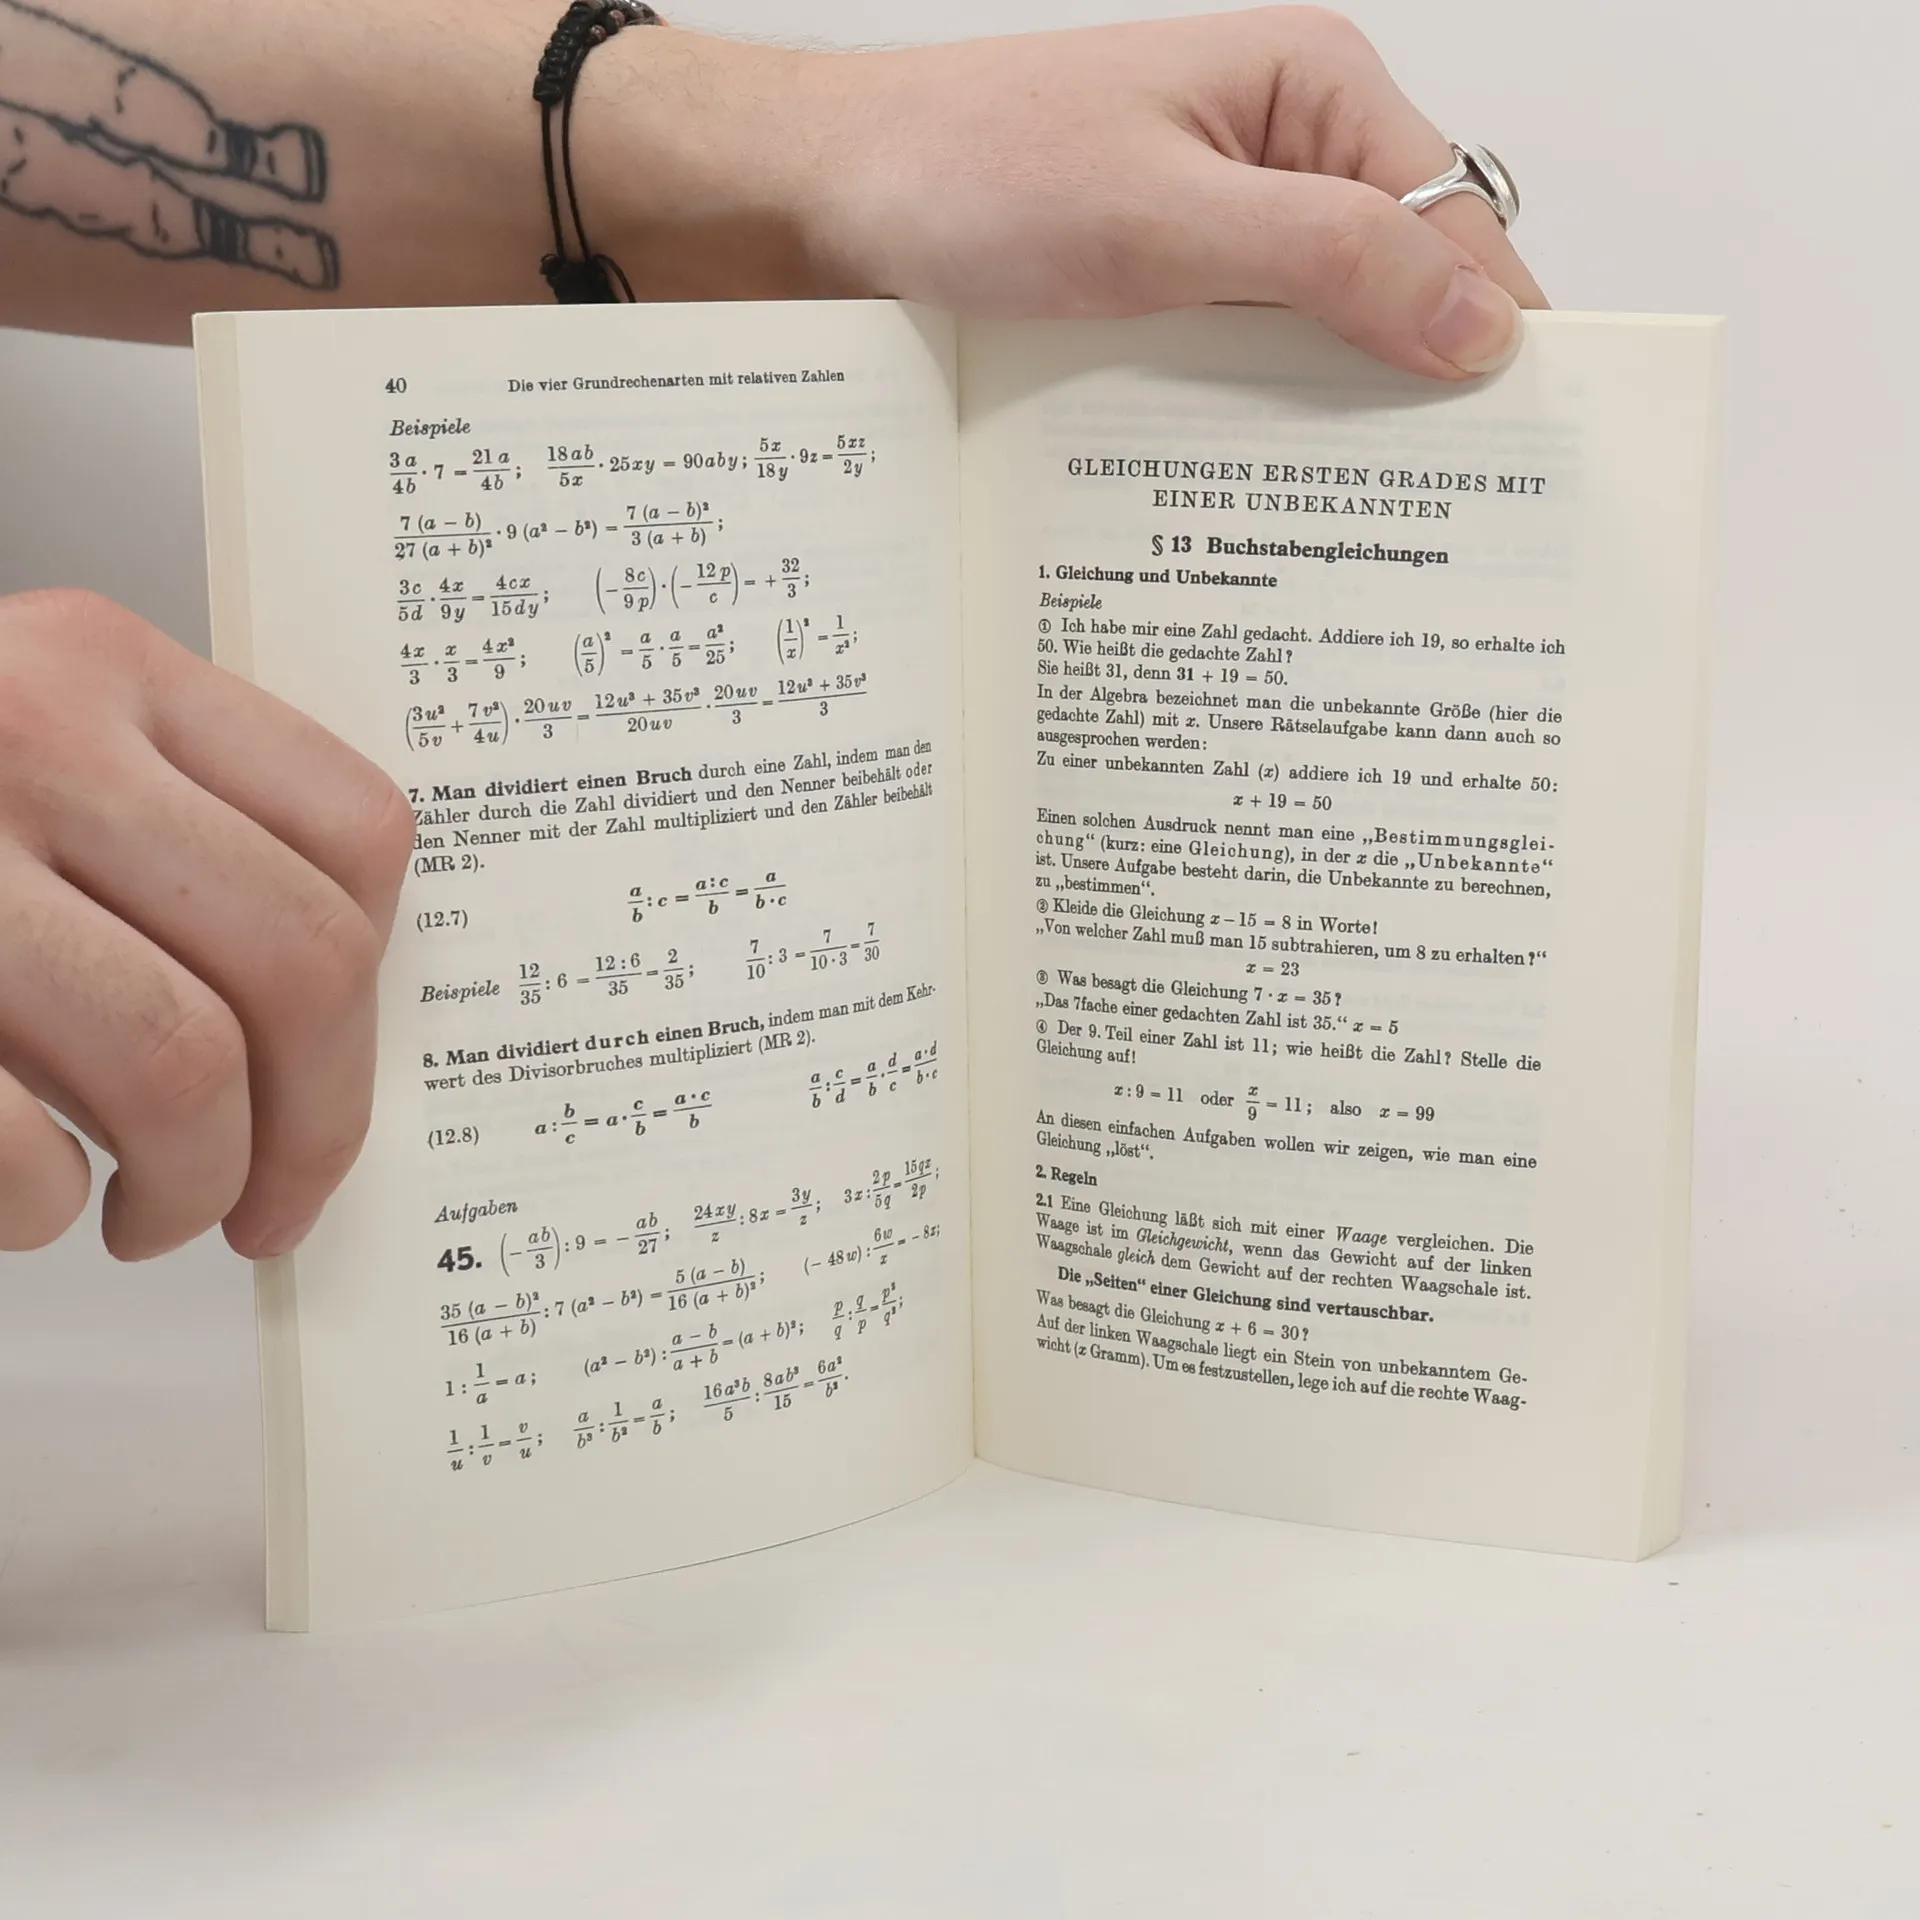 40 Die vier Grundrechenarten mit relativen Zahlen
Beispiele
3a/4b · 7 = 21a/4b; 18ab/5x · 25xy = 90aby; 5x/18y · 9z = 5xz/2y;
7(a − b)/27(a + b)² · 9(a² − b²) = 7(a − b)²/3(a + b);
3c/5d · 4x/9y = 4cx/15dy; (−8c/9p) · (−12p/c) = +32/3;
4x/3 · x/3 = 4x²/9; (a/5)² = a/5 · a/5 = a²/25; (1/x)² = 1/x²;
(3u²/5v + 7v²/4u) · 20uv/3 = 12u³ + 35v³/20uv · 20uv/3 = 12u³ + 35v³/3
7. Man dividiert einen Bruch durch eine Zahl, indem man den
Zähler durch die Zahl dividiert und den Nenner beibehält oder
den Nenner mit der Zahl multipliziert und den Zähler beibehält
(MR 2).
(12.7) a/b : c = a:c/b = a/b·c
Beispiele 12/35 : 6 = 12:6/35 = 2/35; 7/10 : 3 = 7/10·3 = 7/30
8. Man dividiert durch einen Bruch, indem man mit dem Kehr-
wert des Divisorbruches multipliziert (MR 2).
(12.8) a : b/c = a · c/b = a·c/b a/b : c/d = a/b · d/c = a·d/b·c
Aufgaben
45. (−ab/3) : 9 = −ab/27; 24xy/z : 8x = 3y/z; 3z : 2p/5q = 15qz/2p;
35(a − b)²/16(a + b) : 7(a² − b²) = 5(a − b)/16(a + b)²; (−48w) : 6w/z = −8z;
1 : 1/a = a; (a² − b²) : a − b/a + b = (a + b)²; p/q : q/p = p²/q²;
1/u : 1/v = v/u; a/b³ : 1/b² = a/b; 16a³b/5 : 8ab³/15 = 6a²/b².
GLEICHUNGEN ERSTEN GRADES MIT
EINER UNBEKANNTEN
§ 13 Buchstabengleichungen
1. Gleichung und Unbekannte
Beispiele
① Ich habe mir eine Zahl gedacht. Addiere ich 19, so erhalte ich
50. Wie heißt die gedachte Zahl?
Sie heißt 31, denn 31 + 19 = 50.
In der Algebra bezeichnet man die unbekannte Größe (hier die
gedachte Zahl) mit x. Unsere Rätselaufgabe kann dann auch so
ausgesprochen werden:
Zu einer unbekannten Zahl (x) addiere ich 19 und erhalte 50:
x + 19 = 50
Einen solchen Ausdruck nennt man eine „Bestimmungsglei-
chung“ (kurz: eine Gleichung), in der x die „Unbekannte“
ist. Unsere Aufgabe besteht darin, die Unbekannte zu berechnen,
zu „bestimmen“.
② Kleide die Gleichung x − 15 = 8 in Worte!
„Von welcher Zahl muß man 15 subtrahieren, um 8 zu erhalten?“
x = 23
③ Was besagt die Gleichung 7 · x = 35?
„Das 7fache einer gedachten Zahl ist 35.“ x = 5
④ Der 9. Teil einer Zahl ist 11; wie heißt die Zahl? Stelle die
Gleichung auf!
x : 9 = 11 oder x/9 = 11; also x = 99
An diesen einfachen Aufgaben wollen wir zeigen, wie man eine
Gleichung „löst“.
2. Regeln
2.1 Eine Gleichung läßt sich mit einer Waage vergleichen. Die
Waage ist im Gleichgewicht, wenn das Gewicht auf der linken
Waagschale gleich dem Gewicht auf der rechten Waagschale ist.
Die „Seiten“ einer Gleichung sind vertauschbar.
Was besagt die Gleichung x + 6 = 30?
Auf der linken Waagschale liegt ein Stein von unbekanntem Ge-
wicht (x Gramm). Um es festzustellen, lege ich auf die rechte Waag-